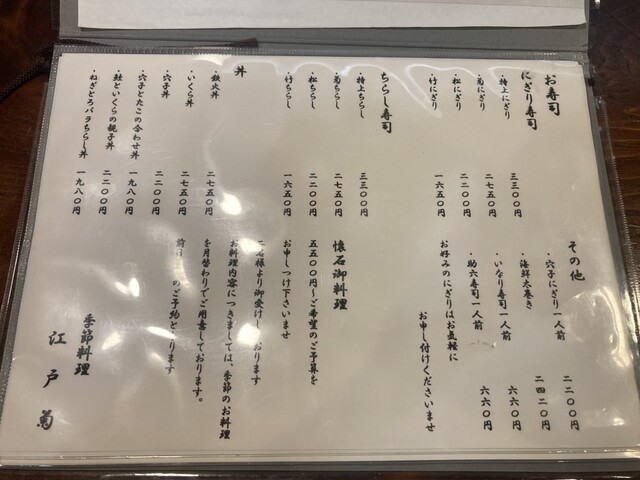 お寿司
にぎり寿司
・特上にぎり 三三〇〇円
・菊にぎり 二七五〇円
・松にぎり 二二〇〇円
・竹にぎり 一六五〇円
ちらし寿司
・特上ちらし 三三〇〇円
・菊ちらし 二七五〇円
・松ちらし 二二〇〇円
・竹ちらし 一六五〇円
丼
・鉄火丼 二七五〇円
・いくら丼 二七五〇円
・穴子丼 二二〇〇円
・穴子とたこの合わせ丼 一九八〇円
・鮭といくらの親子丼 二二〇〇円
・ねぎとろバラちらし丼 一九八〇円
その他
・穴子にぎり一人前 二二〇〇円
・海鮮太巻き 二四二〇円
・いなり寿司一人前 六六〇円
・助六寿司一人前 六六〇円
お好みのにぎりはお気軽に
お申し付けくださいませ
懐石御料理
五五〇〇円〜ご希望のご予算を
お申しつけ下さいませ
二名様より御受けしております
お料理内容につきましては、季節のお料理
を月替わりでご用意しております。
前日 のご予約となります
季節料理
江戸菊